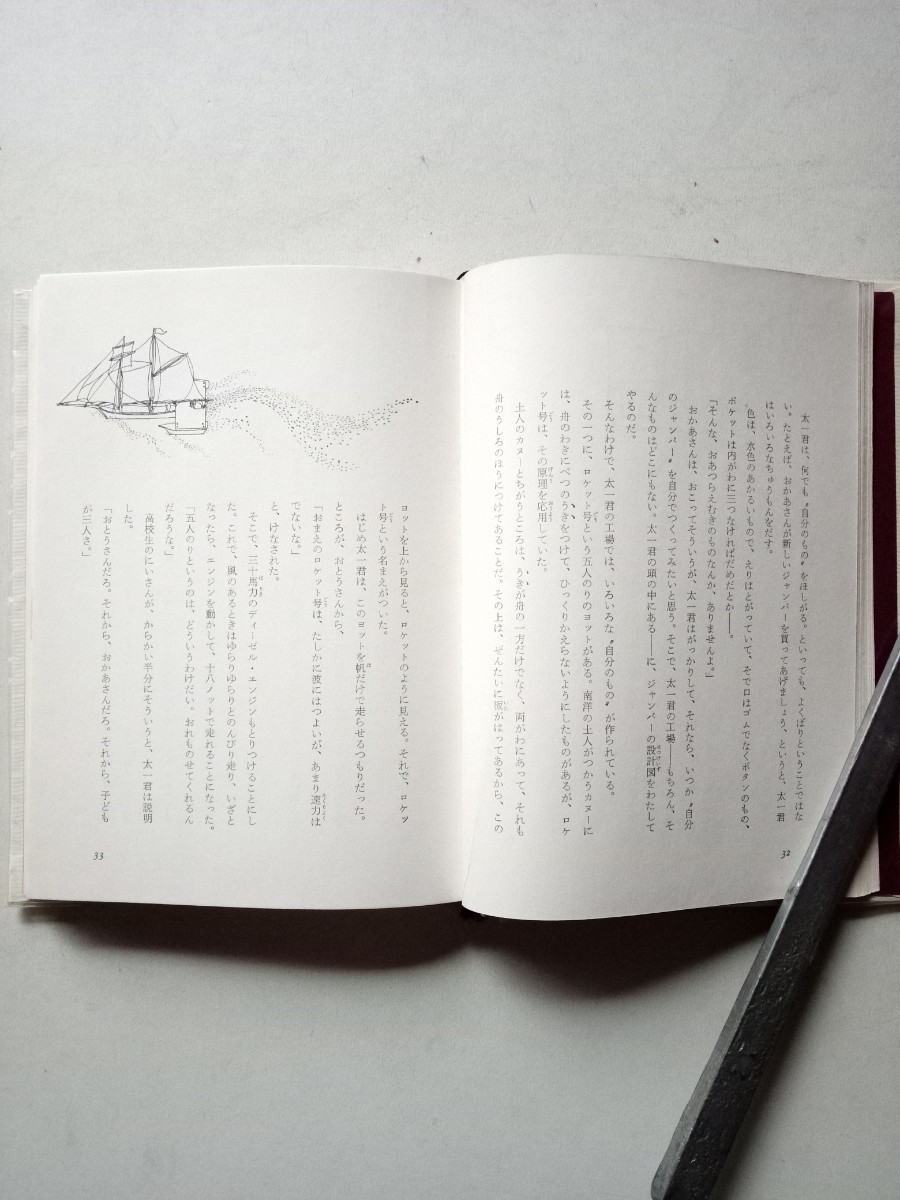 太一君は、何でも〝自分のもの〟をほしがる。といっても、よくばりということではな
い。たとえば、おかあさんが新しいジャンパーを買ってあげましょう、というと、太一君
はいろいろなちゅうもんをだす。
色は、水色のあかるいもので、えりはとがっていて、そで口はゴムでなくボタンのもの、
ポケットは内がわに三つなければだめだとか――。
「そんな、おあつらえむきのものなんか、ありませんよ。」
おかあさんは、おこってそういうが、太一君はがっかりして、それなら、いつか〝自分
のジャンパー〟を自分でつくってみたいと思う。そこで、太一君の工場――もちろん、そ
んなものはどこにもない。太一君の頭の中にある――に、ジャンパーの設計図をわたして
やるのだ。
そんなわけで、太一君の工場では、いろいろな〝自分のもの〟が作られている。
その一つに、ロケット号という五人のりのヨットがある。南洋の土人がつかうカヌーに
は、舟のわきにべつのうきをつけて、ひっくりかえらないようにしたものがあるが、ロケ
ット号は、その原理を応用していた。
土人のカヌーとちがうところは、うきが舟の一方だけでなく、両がわにあって、それも
舟のうしろのほうにつけてあることだ。その上は、ぜんたいに板がはってあるから、この
32
ヨットを上から見ると、ロケットのように見える。それで、ロケッ
ト号という名まえがついた。
はじめ太一君は、このヨットを帆だけで走らせるつもりだった。
ところが、おとうさんから、
「おまえのロケット号は、たしかに波にはつよいが、あまり速力は
でないな。」
と、けなされた。
そこで、三十馬力のディーゼル・エンジンもとりつけることにし
た。これで、風のあるときはゆらりゆらりとのんびり走り、いざと
なったら、エンジンを動かして、十八ノットで走れることになった。
「五人のりというのは、どういうわけだい。おれものせてくれるん
だろうな。」
高校生のにいさんが、からかい半分にそういうと、太一君は説明
した。
「おとうさんだろ。それから、おかあさんだろ。それから、子ども
が三人さ。」
33